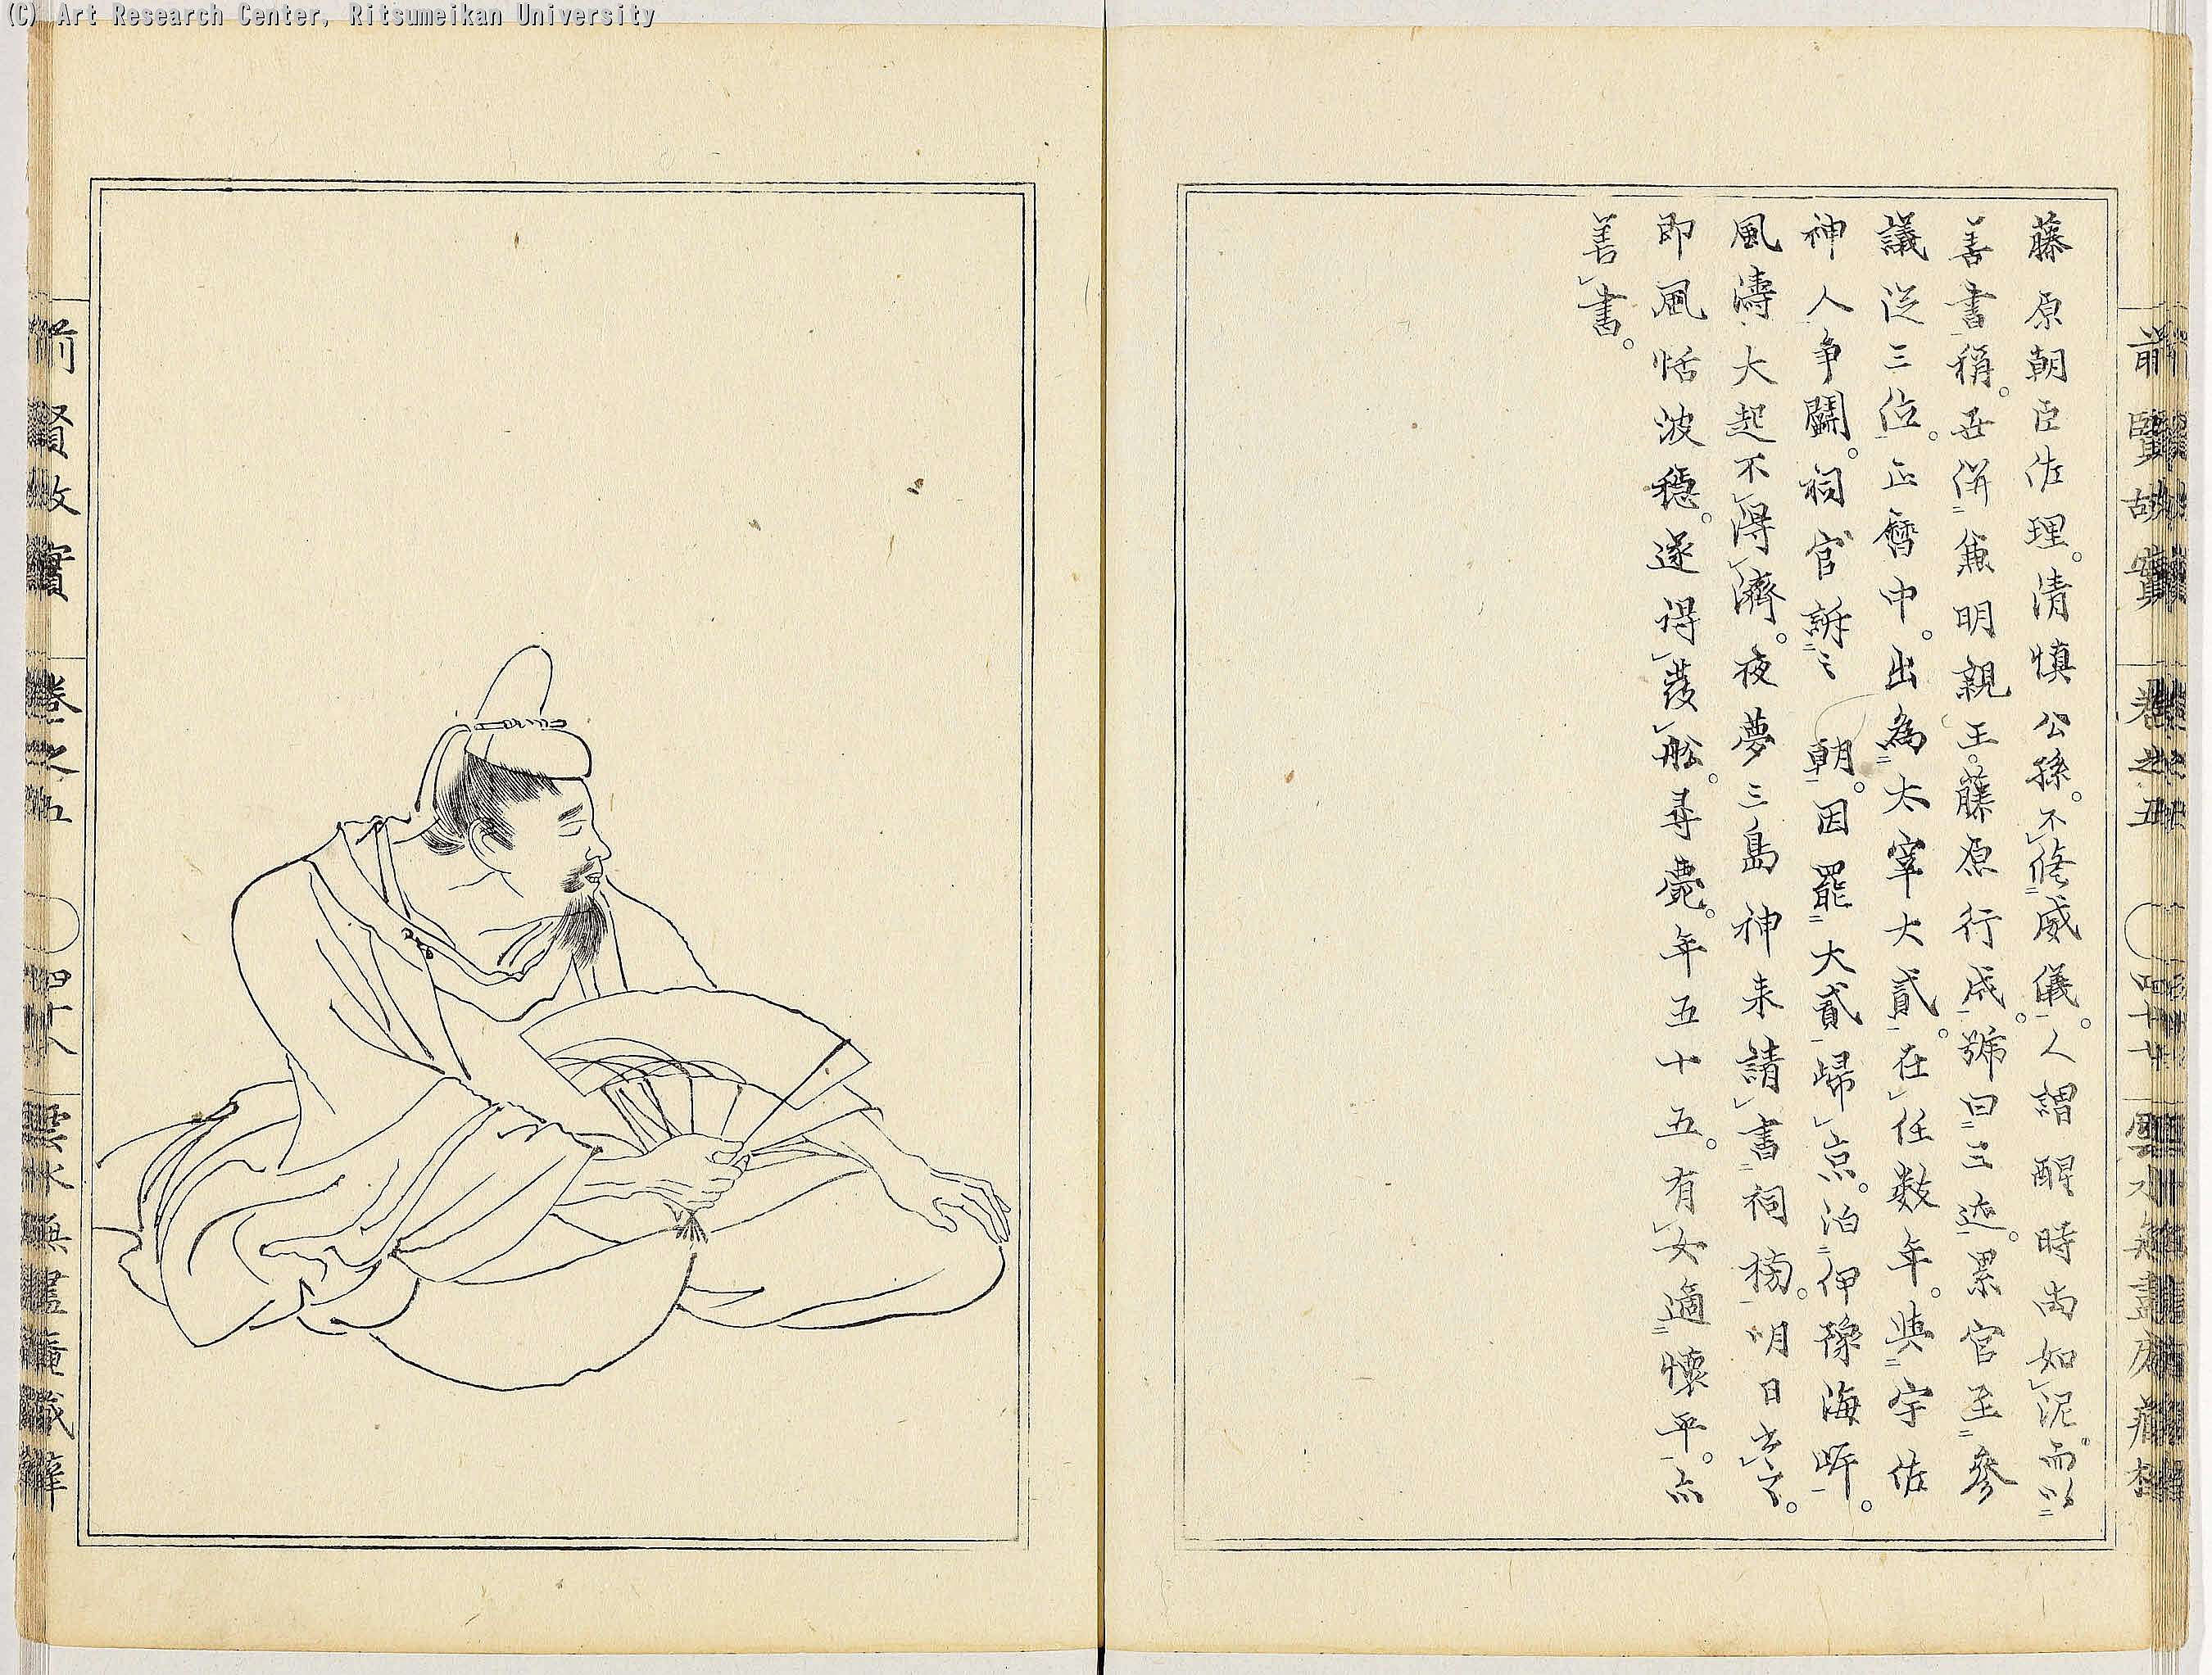 (C) Art Research Center, Ritsumeikan University
前賢故實 卷之五
藤原朝臣佐理。清慎公孫。不脩威儀。人謂醒時尚如泥。而以
善書稱。世併兼明親王。藤原行成。號曰三迹。累官至參
議從三位。正曆中。出為太宰大貳。在任数年。與宇佐
神人爭鬪。祠官訴之 朝。因罷大貳歸京。泊伊豫海岸。
風濤大起不得濟。夜夢三島神来請書祠榜。明日書之。
即風恬波穩。遂得發船。尋薨。年五十五。有女適懷平。亦
善書。
前賢故實 卷之五 四十八 雲水無盡庵藏梓